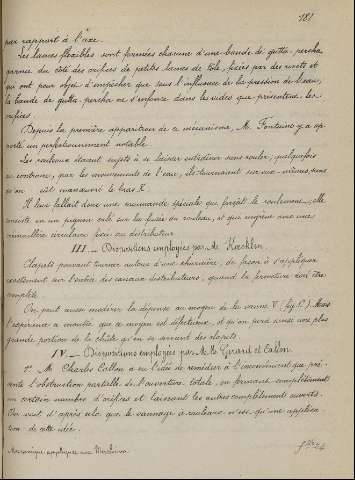 181
par rapport à l'axe.
Les lames flexibles sont formées chacune d'une bande de gutta-percha
garnie du côté des orifices de petites lames de tôle, fixées par des rivets et
qui ont pour objet d'empêcher que sous l'influence de la pression de l'eau,
la bande de gutta-percha ne s'enfonce dans les vides que présentent les
orifices.
Depuis la première apparition de ce mécanisme, M. Fontaine y a ap-
porté un perfectionnement notable.
Les rouleaux étaient sujets à se laisser entraîner sans rouler, quelquefois
au contraire, par les mouvements de l'eau, ils tournaient sur eux-mêmes sans
on eût manœuvré le bras X
Il leur fallait donc une commande spéciale qui forçât le roulement; elle
consiste en un pignon calé sur la fusée du rouleau, et qui engrène avec une
crémaillère circulaire fixée au distributeur.
III._ Dispositions employées par M. Kœchlin
Clapets pouvant tourner autour d'une charnière, de façon à s'appliquer
exactement sur l'entrée des canaux distributeurs, quand la fermeture doit être
complète.
On peut aussi modérer la dépense au moyen de la vanne V (fig. ). Mais
l'expérience a montré que ce moyen est défectueux, et qu'on perd ainsi une plus
grande portion de la chûte qu'en se servant des clapets.
IV._ Dispositions employées par M.M. Girard et Callon.
1° M. Charles Callon a eu l'idée de remédier à l'inconvénient que pré-
sente l'obstruction partielle de l'ouverture totale, en fermant complètement
un certain nombre d'orifices et laissant les autres complètement ouverts.
On voit d'après cela que le vannage à rouleaux n'est qu'une applica-
tion de cette idée.
Mécanique appliquée aux Machines.
24